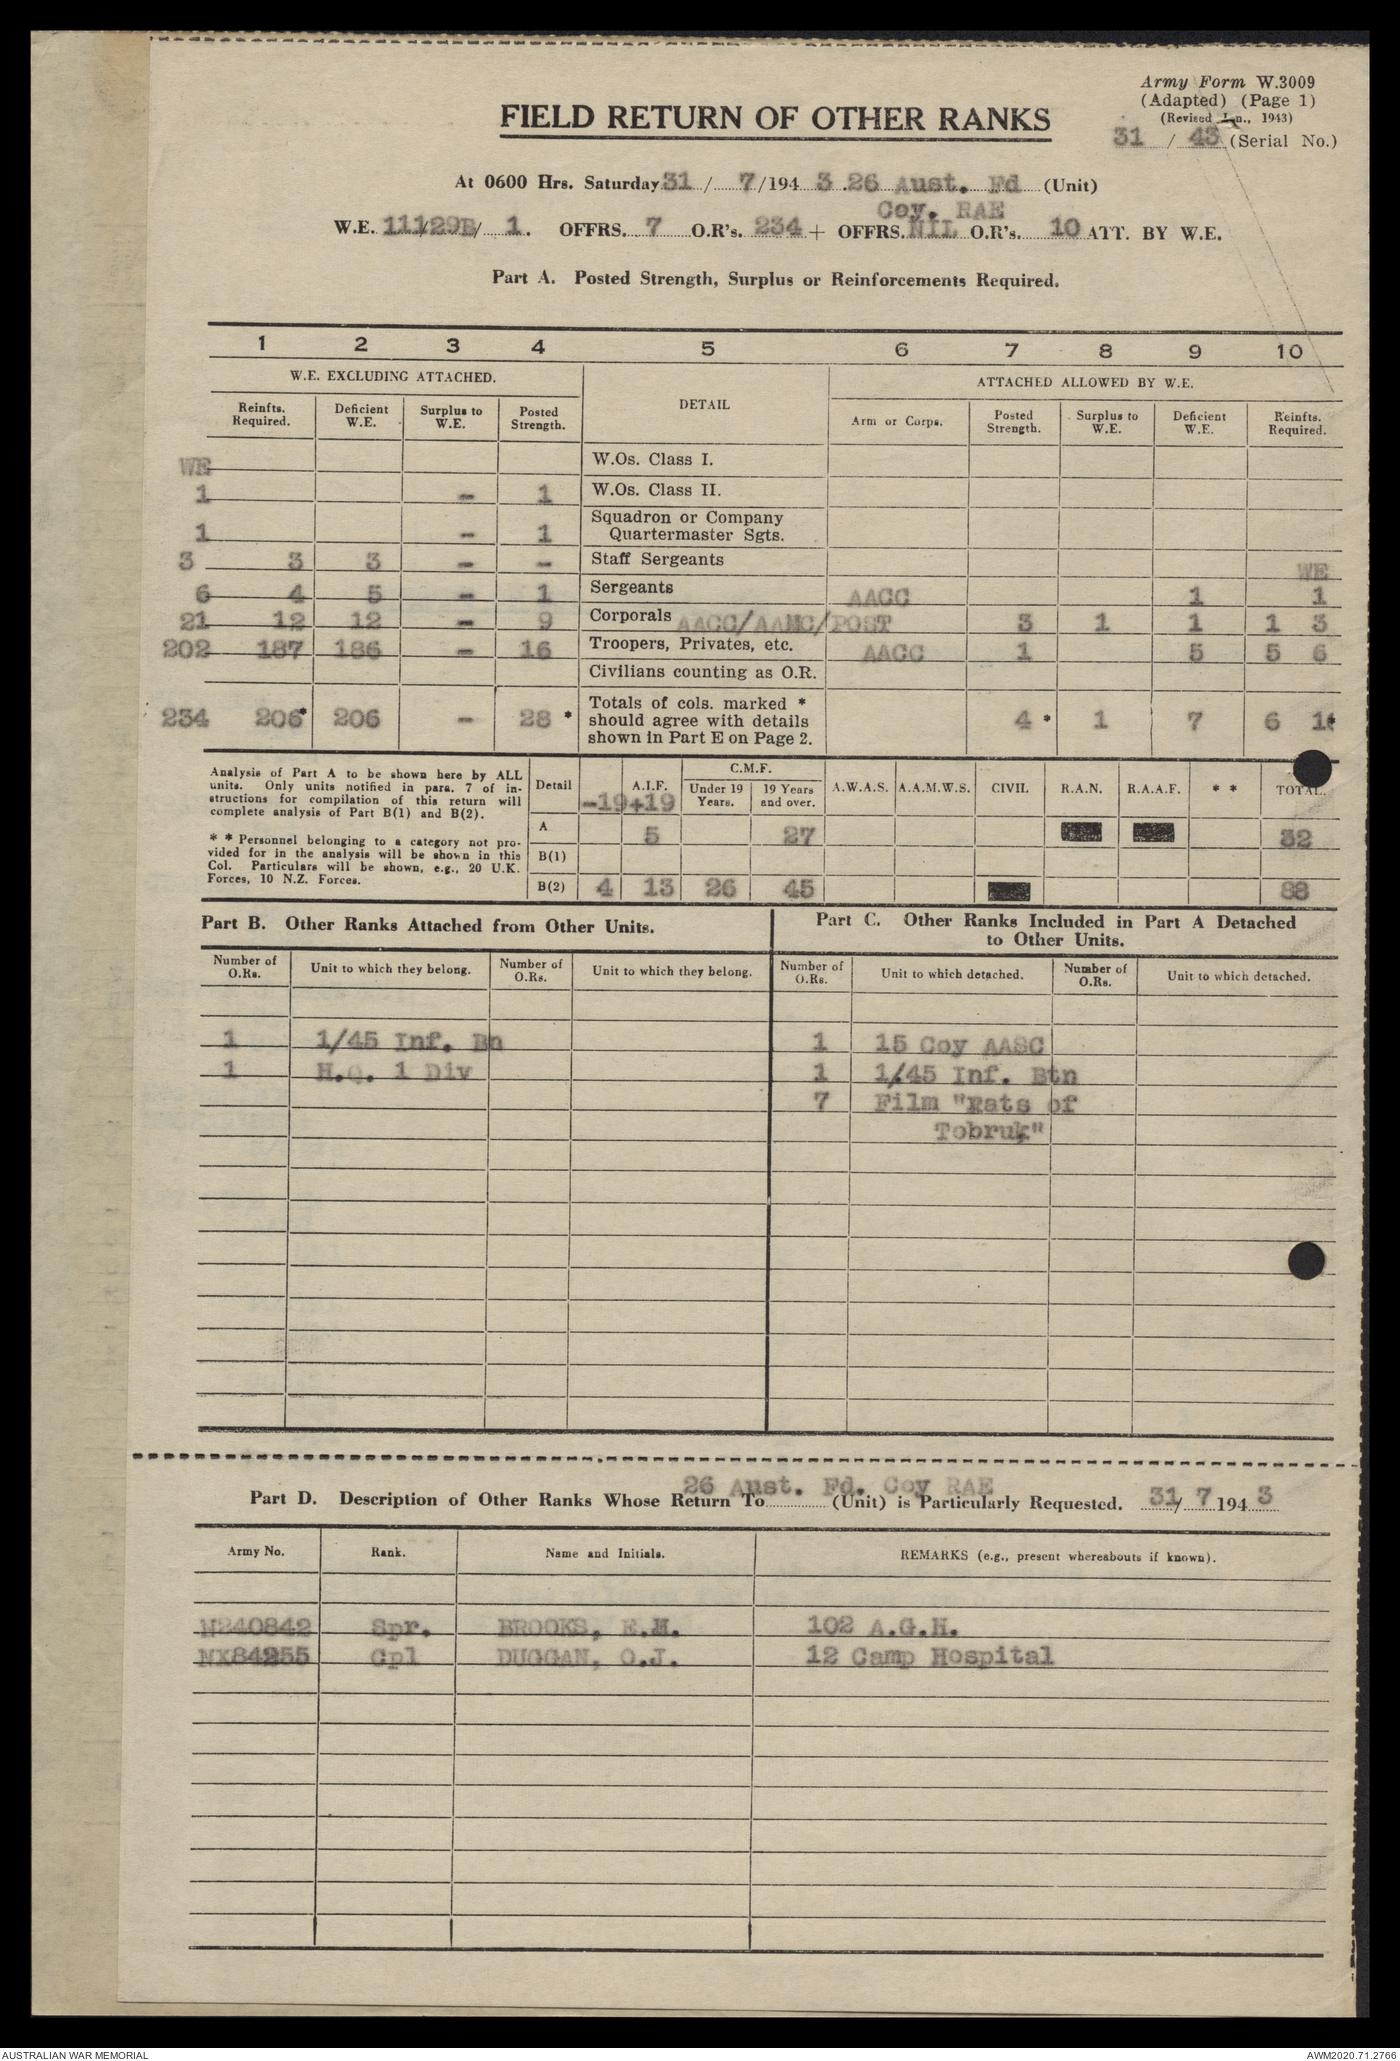 Army Form W.3009
(Adapted) (Page 1)
(Revised Jan., 1943)
31 / 43 (Serial No.)
FIELD RETURN OF OTHER RANKS
At 0600 Hrs. Saturday 31 / 7/194 3 26 Aust. Fd (Unit)
Coy. RAE
W.E. 11/129B/ 1. OFFRS. 7 O.R's. 234 + OFFRS. NIL O.R's. 10 ATT. BY W.E.
Part A. Posted Strength, Surplus or Reinforcements Required.
1 2 3 4 5 6 7 8 9 10
W.E. EXCLUDING ATTACHED. DETAIL ATTACHED ALLOWED BY W.E.
Reinfts. Required. Deficient W.E. Surplus to W.E. Posted Strength. Arm or Corps. Posted Strength. Surplus to W.E. Deficient W.E. Reinfts. Required.
WE W.Os. Class I.
1 - 1 W.Os. Class II.
1 - 1 Squadron or Company Quartermaster Sgts.
3 3 3 - - Staff Sergeants WE
6 4 5 - 1 Sergeants AACC 1 1
21 12 12 - 9 Corporals AACC/AAMC/POST 3 1 1 1 3
202 187 186 - 16 Troopers, Privates, etc. AACC 1 5 5 6
Civilians counting as O.R.
234 206* 206 - 28 * Totals of cols. marked * should agree with details shown in Part E on Page 2. 4 * 1 7 6 1*
Analysis of Part A to be shown here by ALL
units. Only units notified in para. 7 of in-
structions for compilation of this return will
complete analysis of Part B(1) and B(2).
* * Personnel belonging to a category not pro-
vided for in the analysis will be shown in this
Col. Particulars will be shown, e.g., 20 U.K.
Forces, 10 N.Z. Forces.
Detail A.I.F. C.M.F. Under 19 Years. 19 Years and over. A.W.A.S. A.A.M.W.S. CIVIL R.A.N. R.A.A.F. * * TOTAL.
-19 +19
A 5 27 32
B(1)
B(2) 4 13 26 45 88
Part B. Other Ranks Attached from Other Units.
Part C. Other Ranks Included in Part A Detached
to Other Units.
Number of O.Rs. Unit to which they belong. Number of O.Rs. Unit to which they belong. Number of O.Rs. Unit to which detached. Number of O.Rs. Unit to which detached.
1 1/45 Inf. Bn 1 15 Coy AASC
1 H.Q. 1 Div 1 1/45 Inf. Btn
7 Film "Rats of
Tobruk"
26 Aust. Fd. Coy RAE
Part D. Description of Other Ranks Whose Return To (Unit) is Particularly Requested. 31/ 7 194 3
Army No. Rank. Name and Initials. REMARKS (e.g., present whereabouts if known).
N240842 Spr. BROOKS, E.M. 102 A.G.H.
NX84255 Cpl DUGGAN, O.J. 12 Camp Hospital
AUSTRALIAN WAR MEMORIAL AWM2020.71.2766